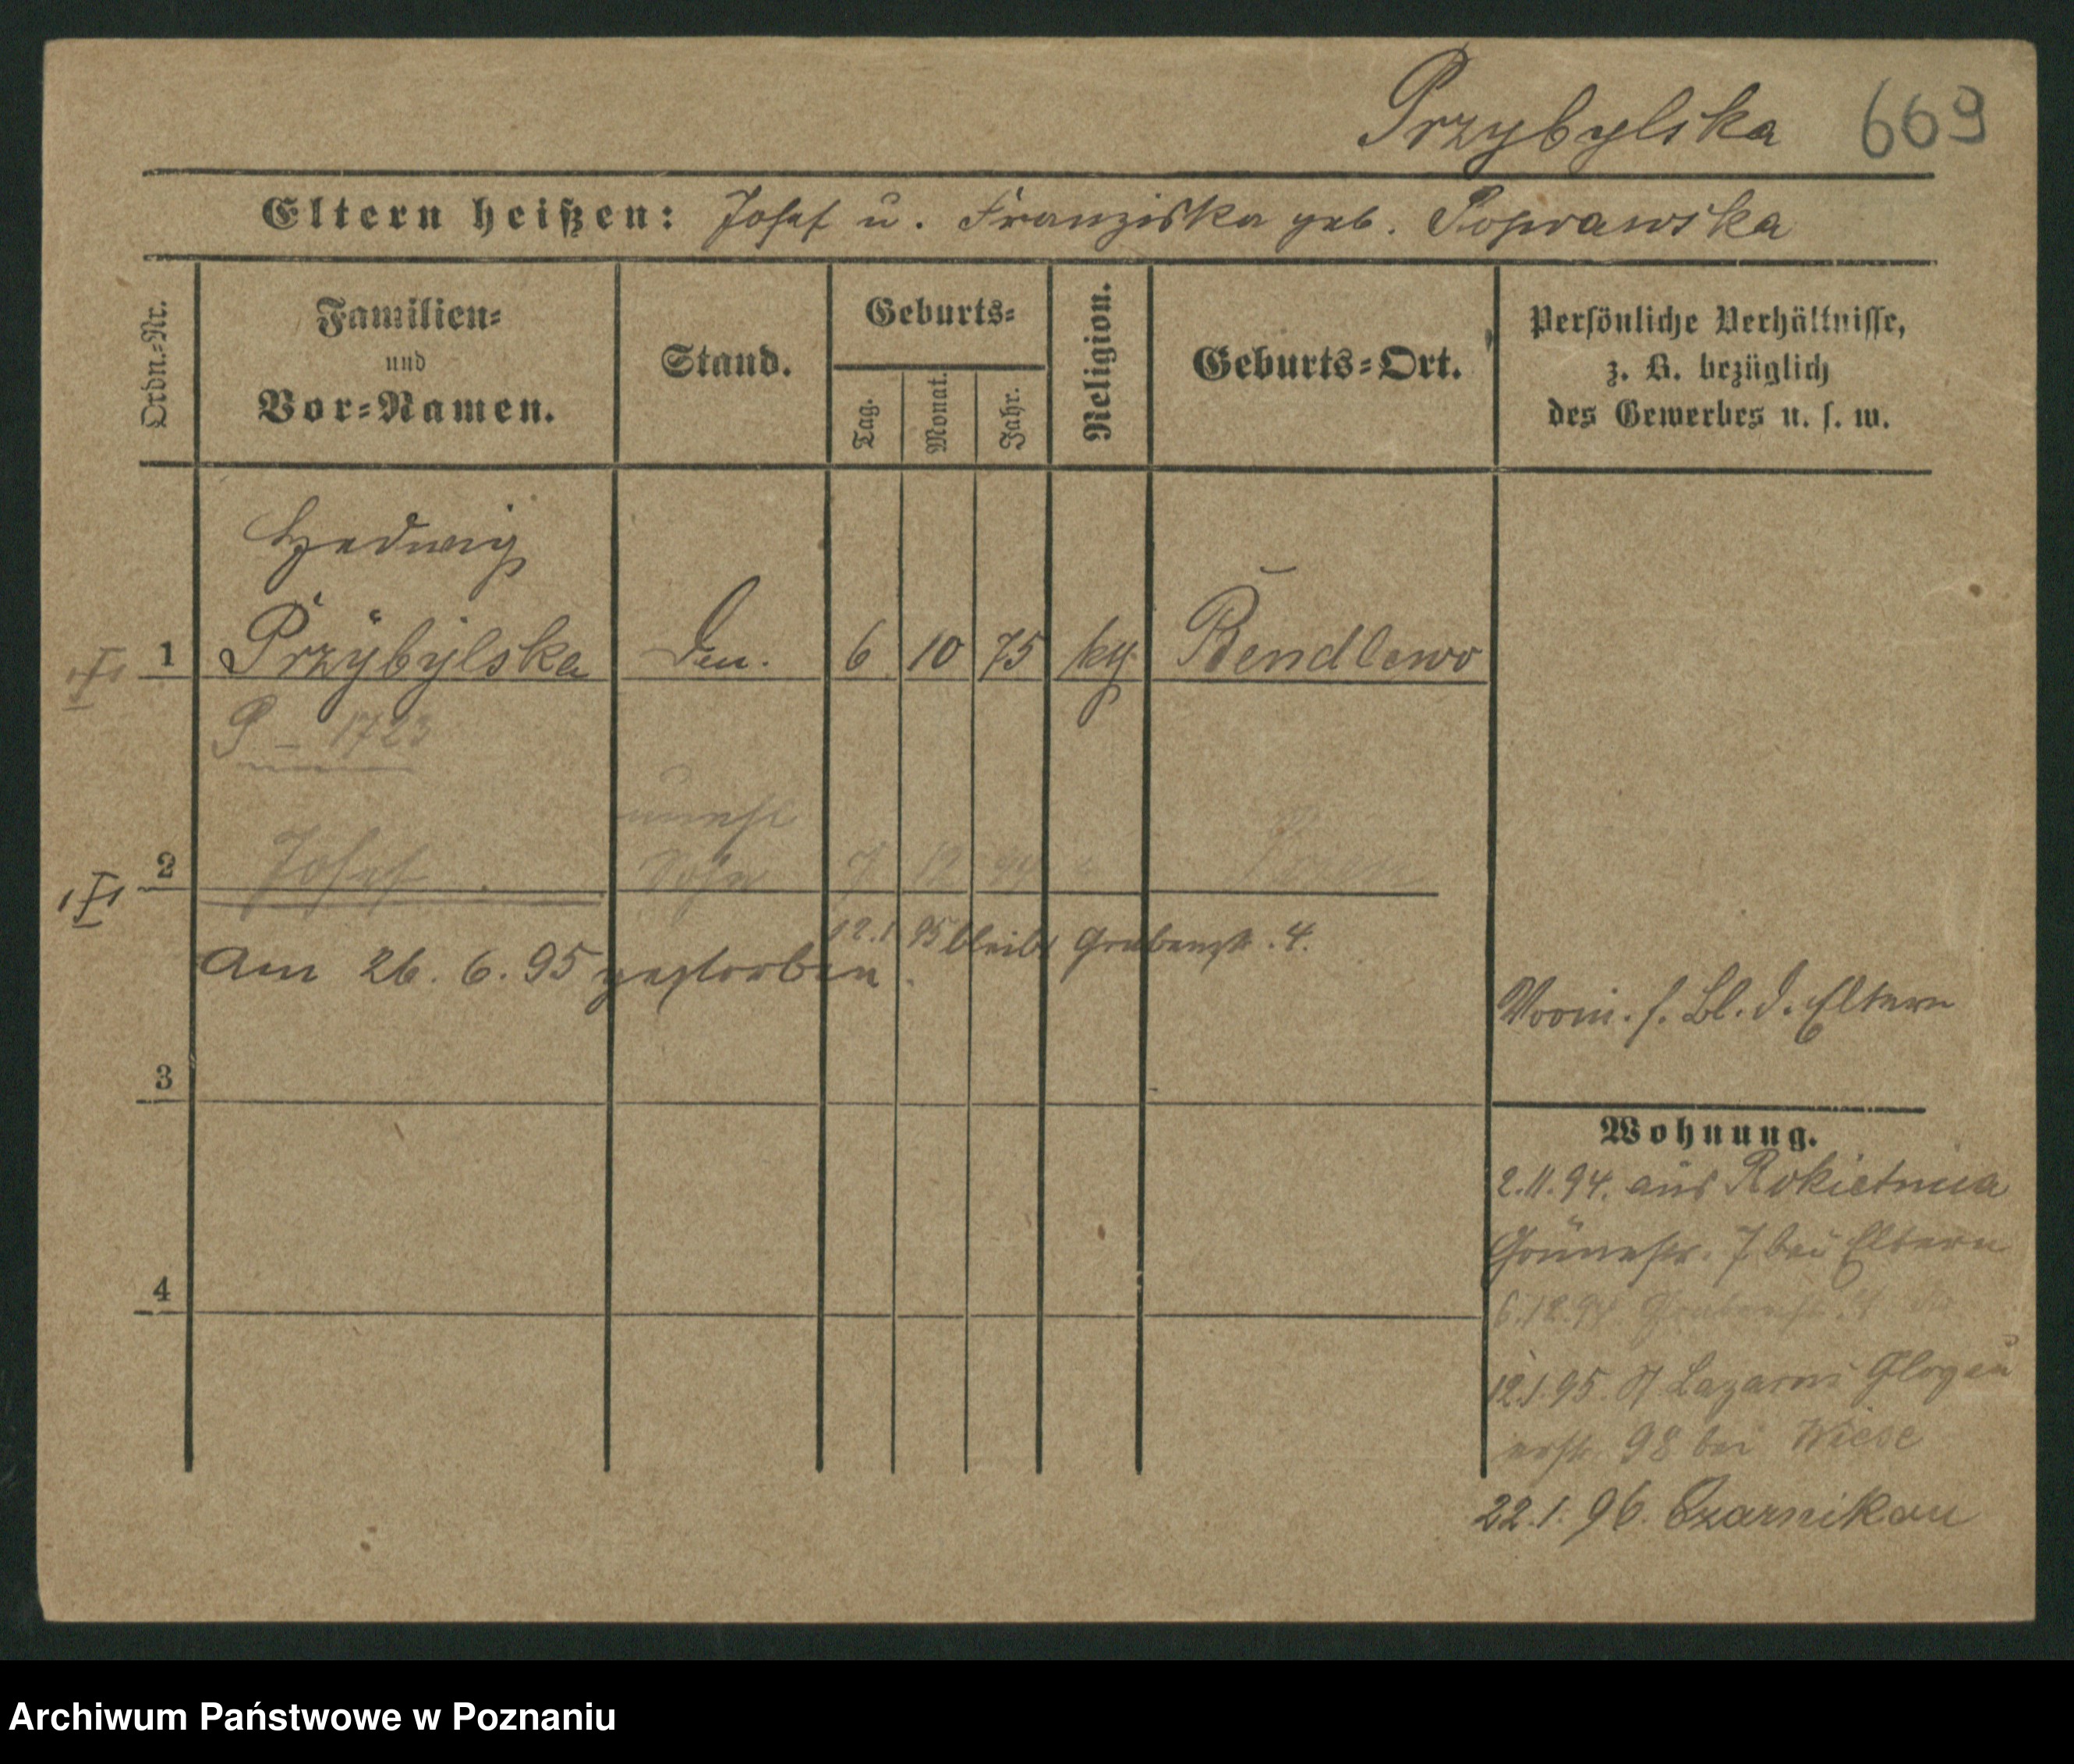 Przybylska 669
Eltern heißen: Josef u. Franziska geb. Poprawska
Ordn.-Nr.
Familien-
und
Vor-Namen.
Stand.
Geburts-
Tag.
Monat.
Jahr.
Religion.
Geburts-Ort.
Persönliche Verhältnisse,
z. B. bezüglich
des Gewerbes u. s. w.
Hedwig
1 Przybylska 6 10 75 Bendlewo
P - 1723
unehl
2 Josef Sohn 7 12 94 Posen
12.1.95 bleibt Grabenstr. 4.
Am 26. 6. 95 gestorben.
Vorm. s. Bl. d. Eltern
3
Wohnung.
2.11.94. aus Rokietnica
Grünestr. 7 bei Eltern
4
6.12.94 Grabenstr. 4
12.1.95. St Lazarus Glogau
erstr. 98 bei Wiese
22.1.96. Czarnikau
Archiwum Państwowe w Poznaniu